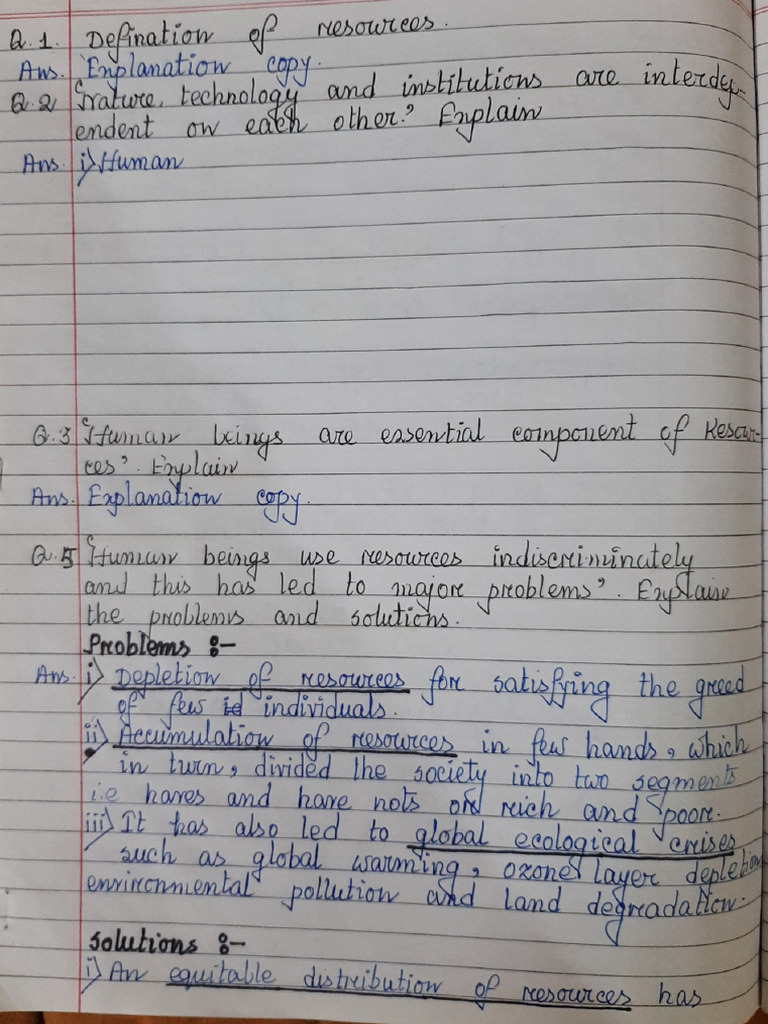 Q.1. Defination of resources.
Ans. Explanation copy.
Q.2 'Nature, technology and institutions are interdep-
endent on each other.' Explain
Ans. i) Human
Q.3 'Human beings are essential component of Resour-
ces'. Explain
Ans. Explanation copy.
Q.5 'Human beings use resources indiscriminately
and this has led to major problems'. Explain
the problems and solutions.
Problems :-
Ans. i) Depletion of resources for satisfying the greed
of few individuals.
ii) Accumulation of resources in few hands, which
in turn, divided the society into two segments
i.e haves and have nots or rich and poor.
iii) It has also led to global ecological crises
such as global warming, ozone layer depletion
environmental pollution and land degradation.
Solutions :-
i) An equitable distribution of resources has